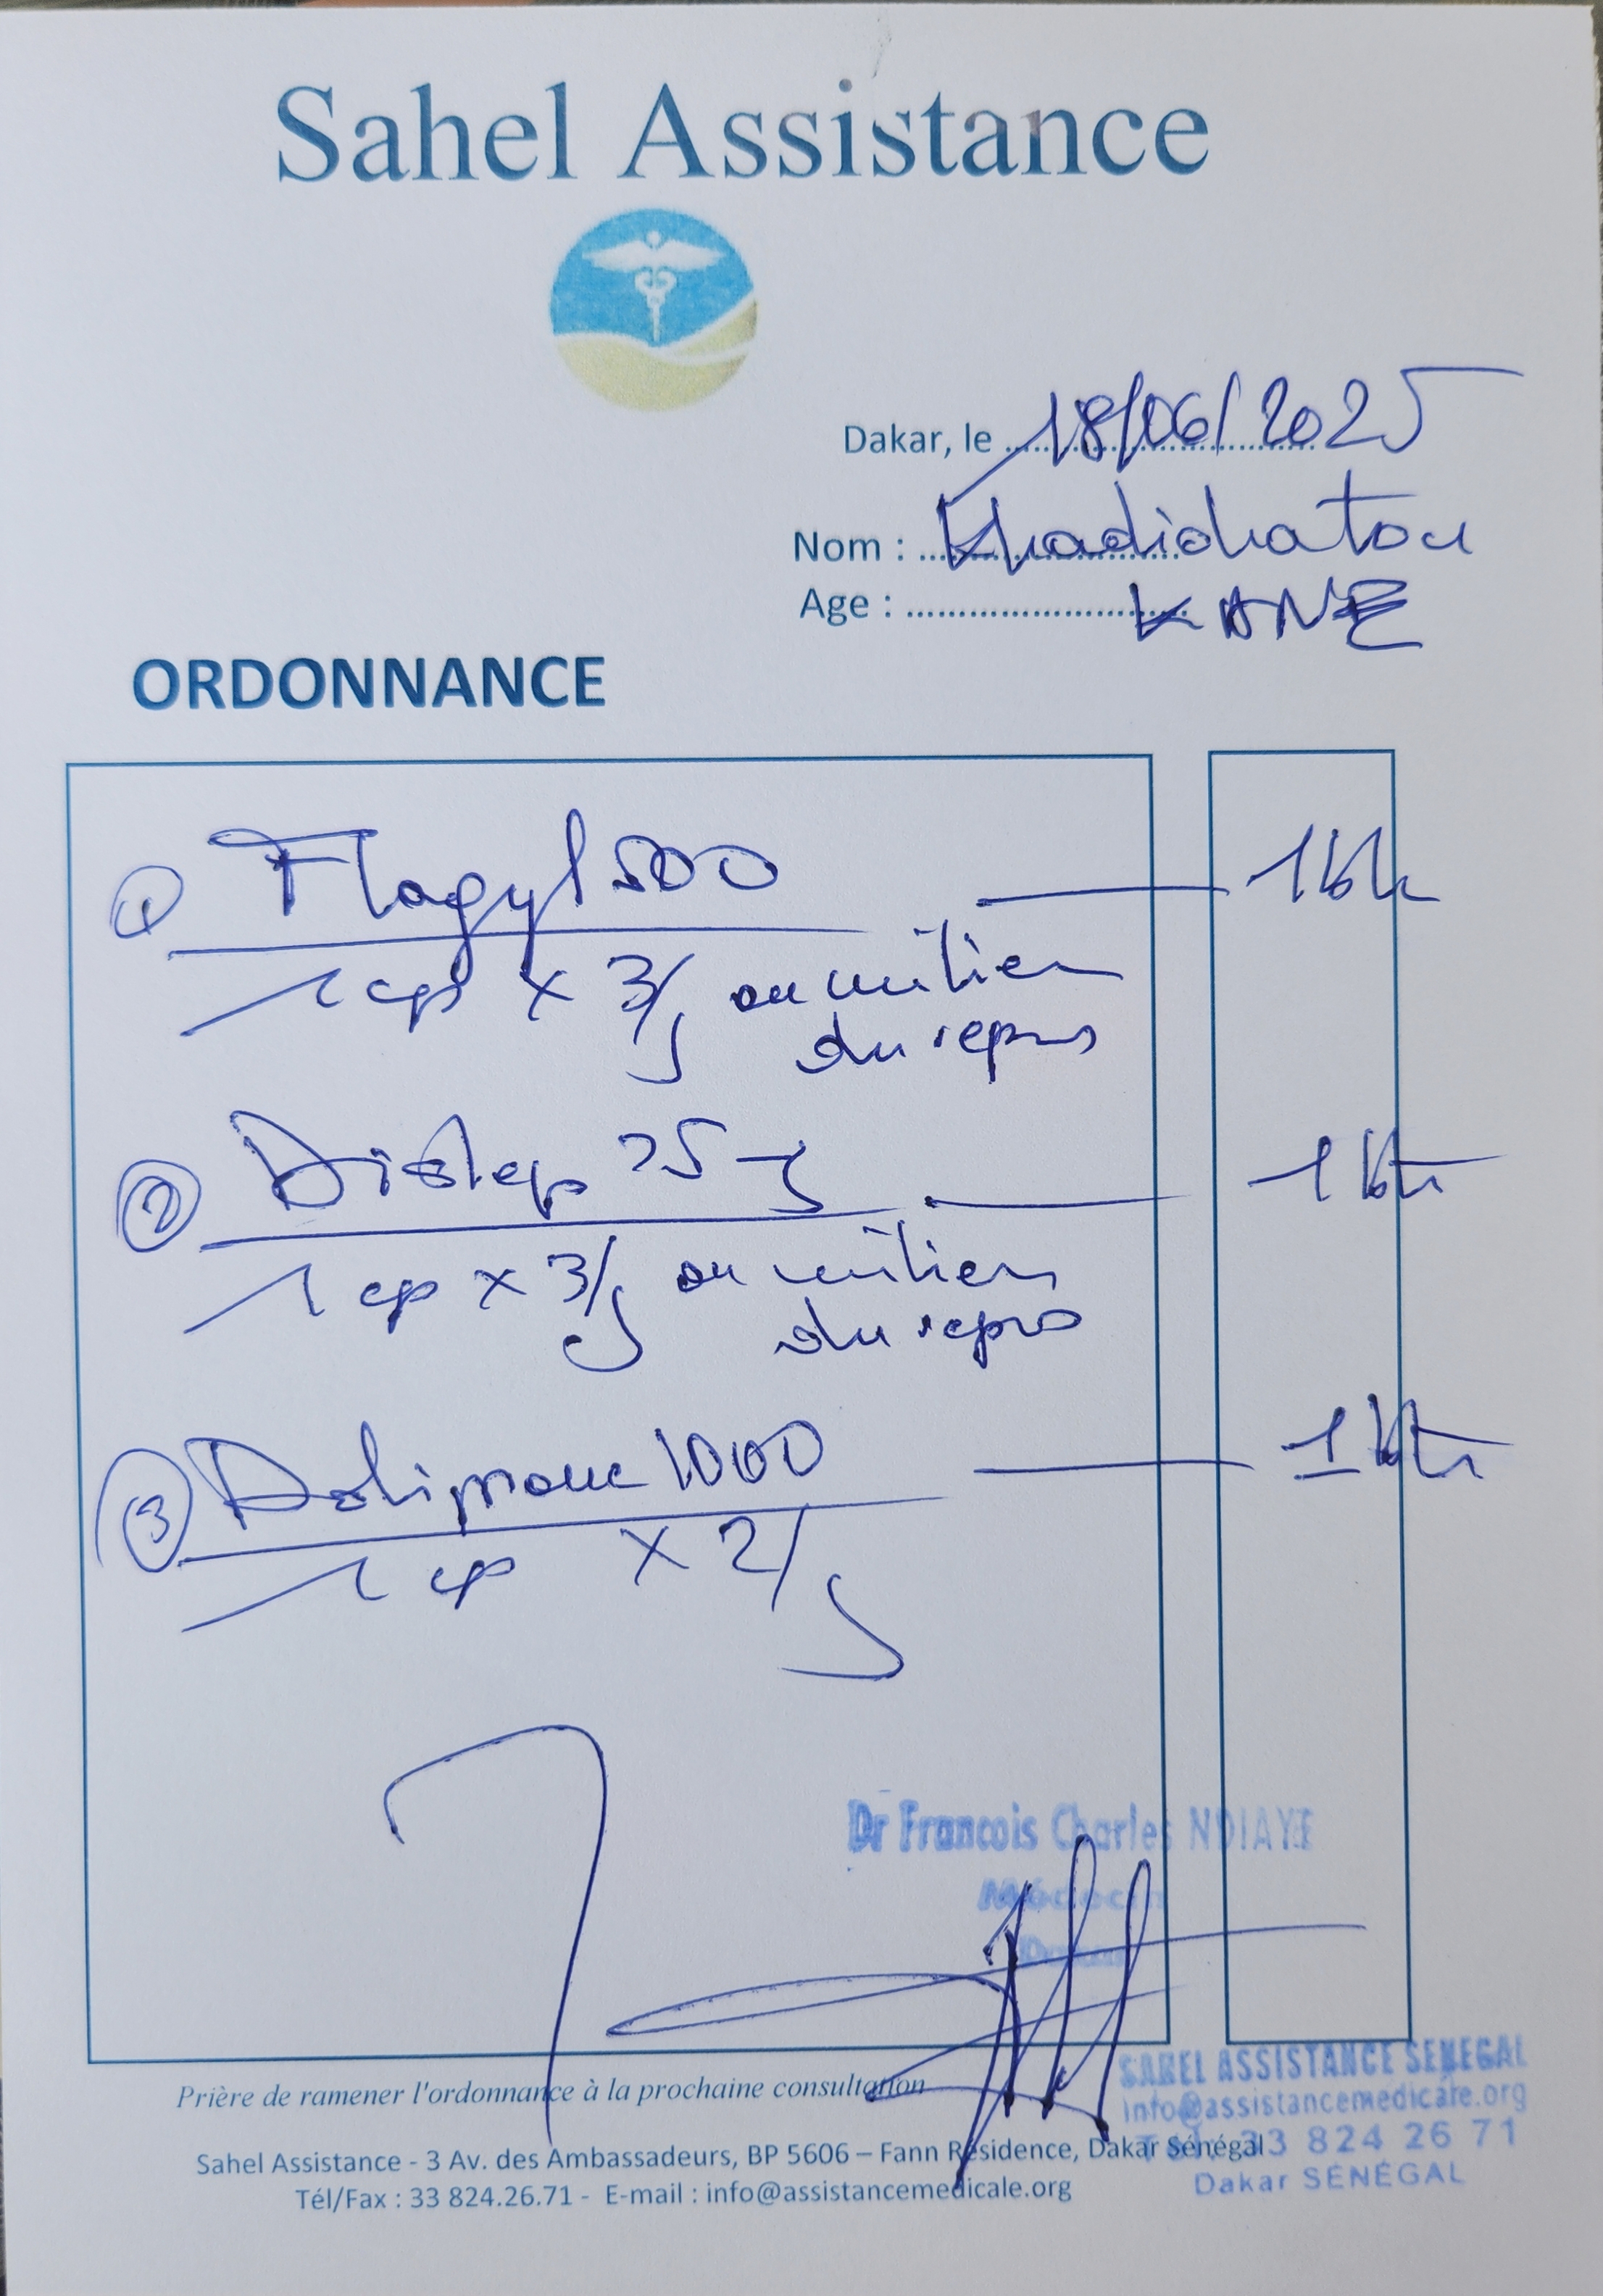 Sahel Assistance
Dakar, le 18/06/2025
Nom : Khadidiatou
Age : KANE
ORDONNANCE
① Flagyl 500 1 bte
1 cp x 3/j au milieu
du repas
② 25 1 bte
1 cp x 3/j au milieu
du repas
③ Doliprane 1000 1 bte
1 cp x 2/j
Dr Francois Charles NDIAYE
Médecin
SAHEL ASSISTANCE SENEGAL
Prière de ramener l'ordonnance à la prochaine consultation
info@assistancemedicale.org
Sahel Assistance - 3 Av. des Ambassadeurs, BP 5606 – Fann Résidence, Dakar Sénégal
33 824 26 71
Tél/Fax : 33 824.26.71 - E-mail : info@assistancemedicale.org
Dakar SÉNÉGAL